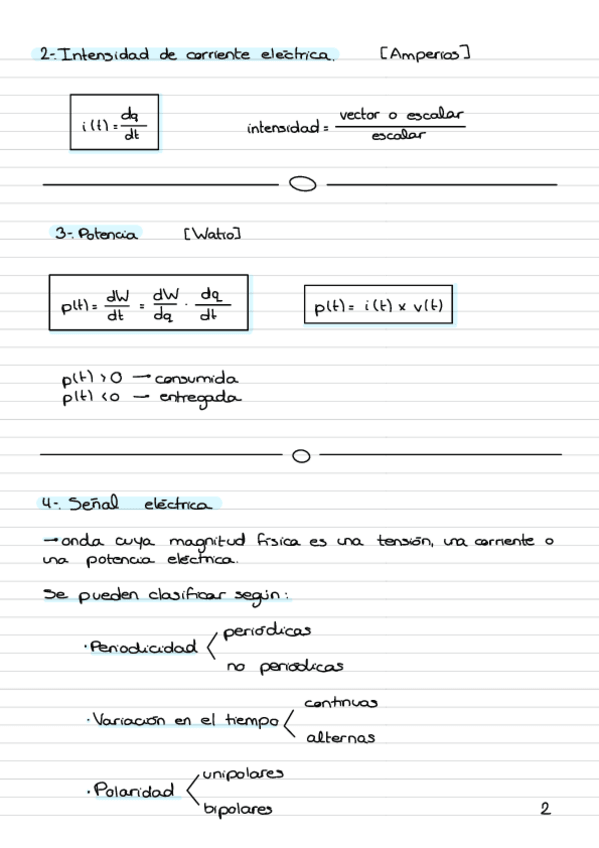 2-. Intensidad de corriente eléctrica. [Amperios]
i(t) = dq/dt intensidad = vector o escalar/escalar
3-. Potencia [Watio]
p(t) = dW/dt = dW/dq · dq/dt p(t) = i(t) x v(t)
p(t) > 0 → consumida
p(t) < 0 → entregada
4-. Señal eléctrica
→ onda cuya magnitud física es una tensión, una corriente o
una potencia eléctrica.
Se pueden clasificar según:
· Periodicidad < periódicas
no periódicas
· Variación en el tiempo < continuas
alternas
· Polaridad < unipolares
bipolares
2